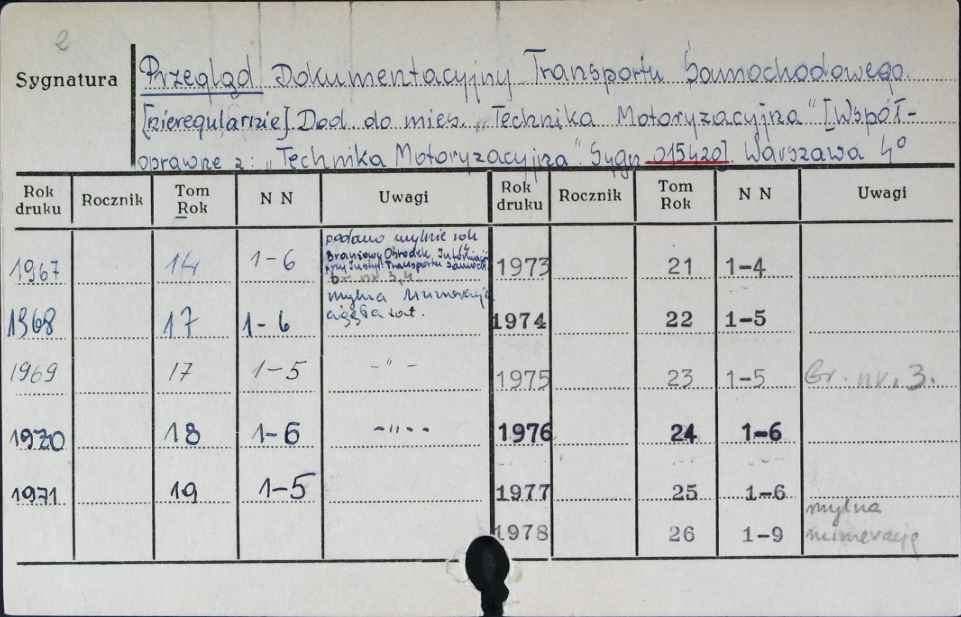 2
Sygnatura
Przegląd Dokumentacyjny Transportu Samochodowego.
[nieregularnie]. Dod. do mies. „Technika Motoryzacyjna" [Współ-
oprawne z: „Technika Motoryzacyjna". Sygn. 015420]. Warszawa 4°
Rok druku Rocznik Tom Rok N N Uwagi Rok druku Rocznik Tom Rok N N Uwagi
1967 14 1-6 podano mylnie rok
Branżowy Ośrodek Informacji
przy Instyt. Transportu Samoch.
br. nr. 3,4 1973 21 1-4
1968 17 1-6 mylna numeracja
ciągła rocz. 1974 22 1-5
1969 17 1-5 -"- 1975 23 1-5 Br. nr. 3.
1970 18 1-6 -"-- 1976 24 1-6
1971 19 1-5 1977 25 1-6
1978 26 1-9 mylna
numeracja